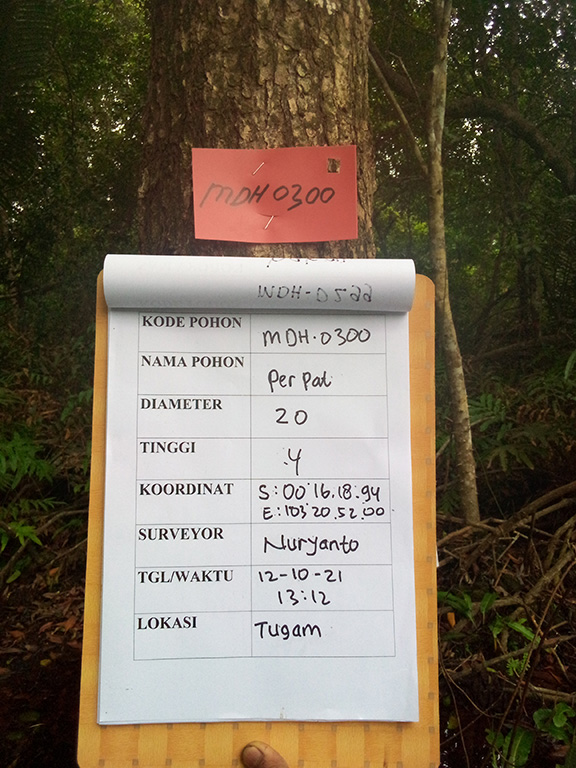 MDH 0300
MDH-0299
KODE POHON MDH.0300
NAMA POHON Perpat
DIAMETER 20
TINGGI 4
KOORDINAT S:00 16.18.94
E:103 20.52.00
SURVEYOR Nuryanto
TGL/WAKTU 12-10-21
13:12
LOKASI Tugam